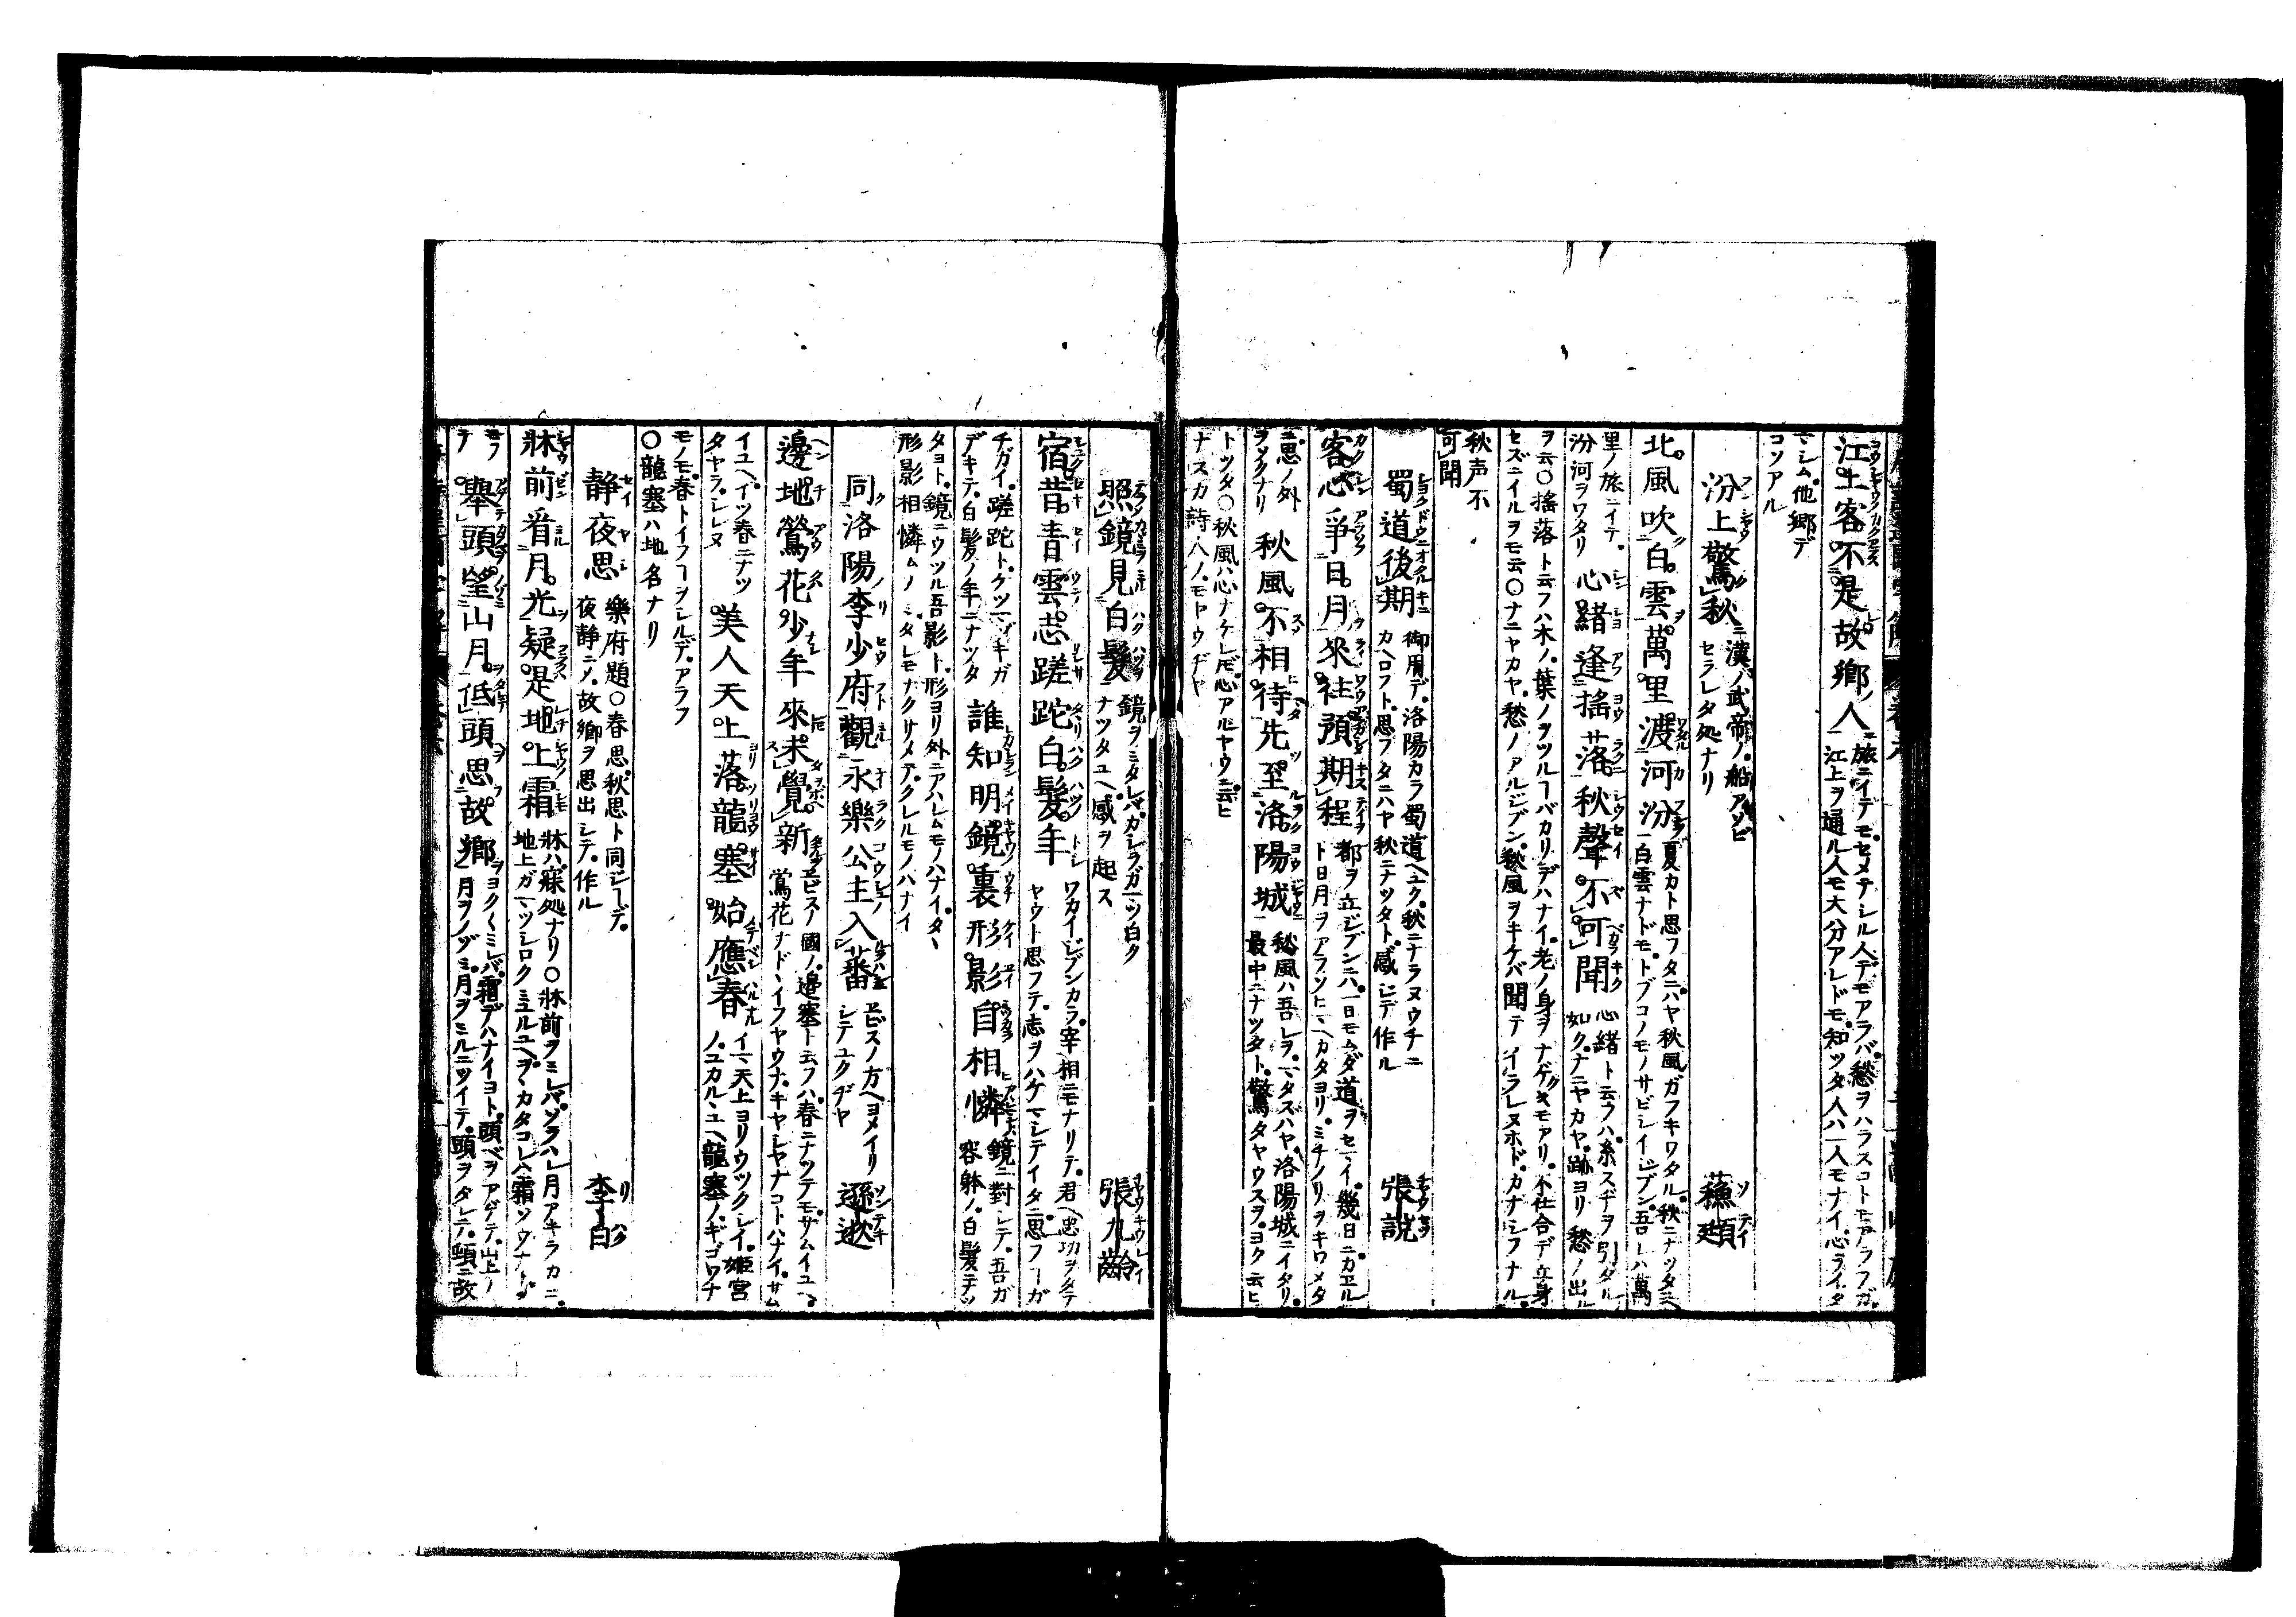 江上客不是故郷人 旅ニイデモセメテシル人デモアラバ愁ヲハラスコトモアラフガ
江上ヲ通ル人モ大分アレドモ知ツタ人ハ一人モナイ心ライタ
マシム他郷デ
コソアル
汾上驚秋 漢ノ武帝ノ船アソビ
セラレタ処ナリ 蘓頲
北風吹白雲萬里渡河汾 夏カト思フタニハヤ秋風ガフキワタル秋ニナツタユヘ
白雲ナドモトブコノモノサビシイジブン吾レハ萬
里ノ旅ニイテ
汾河ヲワタリ 心緒逢揺落秋聲不可聞 心緒ト云フハ糸スヂヲ引ダル
如クナニヤカヤ跡ヨリ愁ノ出ル
ヲ云〇揺落ト云フハ木ノ葉ノヲツルーバカリデハナイ老ノ身ヲナゲキモアリ不仕合デ立身
セズニイルヲモ云〇ナニヤカヤ愁ノアルジブン秋風ヲキケバ聞テイラレヌホドカナシフナル
秋声不
可聞
蜀道後期 御用デ洛陽カラ蜀道ヘユク秋ニナラヌウチニ
カヘロフト思フタニハヤ秋ニナツタト感ジテ作ル 張説
客心爭日月來往預期程 都ヲ立ジブンニハ一日モムダ道ヲセマイ幾日ニカヱル
ト日月ヲアラソヒカタヨリミチノリヲキワメタ
ニ思ノ外
ヲソクナリ 秋風不相待先至洛陽城 秋風ハ吾レヲマタズハヤ洛陽城ニイタリ
最中ニナツタト驚タヤウスヲヨク云ヒ
トツタ〇秋風ハ心ナケレ𪜈心アルヤウニ云ヒ
ナスカ詩人ノモヤウヂヤ
照鏡見白髮 鏡ヲミタレバカシラガマツ白ク
ナツタユヘ感ヲ起ス 張九齡
宿昔青雲志蹉跎白髮年 ワカイジブンカラ宰相ニモナリテ君ヘ忠功ヲタテ
ヤウト思フテ志ヲハゲマシテイタニ思フーガ
チガイ蹉跎トクツマヅキガ
デキテ白髪ノ年ニナツタ 誰知明鏡裏形影自相憐 鏡ニ對シテ吾ガ
容躰ノ白髪テツ
タヨト鏡ニウツル吾影ト形ヨリ外ニアハレムモノハナイタヽ
形影相憐ムノミタレモナクサメテクレルモノハナイ
同洛陽李少府觀永樂公主入蕃 エビスノ方ヘヨメイリ
シテユクヂヤ 遜逖
邊地鶯花少年來未覺新 エビスノ國ノ邉塞ト云フハ春ニナツテモサムイユヘ
鶯花ナドヽイフヤウナキヤシヤナコトハナイサム
イユヘイツ春ニナツ
タヤラシレヌ 美人天上落龍塞始應春 イマ天上ヨリウツクシイ姫宮
ノユカルヽユヘ龍塞ノギゴワナ
モノモ春トイフーヲシルデアラフ
〇龍塞ハ地名ナリ
静夜思 樂府題〇春思秋思ト同ジーデ
夜静ニメ故郷ヲ思出シテ作ル 李白
牀前看月光疑是地上霜 牀ハ寐処ナリ〇牀前ヲミレバソラハレ月アキラカニ
地上ガマツシロクミユルユヘヲヽカタコレハ霜ソウナト
モフ
テ 擧頭望山月低頭思故鄉 ヲヨクミレバ霜デハナイヨト頭ベヲアゲテ山上ノ
月ヲノゾミ月ヲミルニツイテ頭ヲタレテ頭ニ故